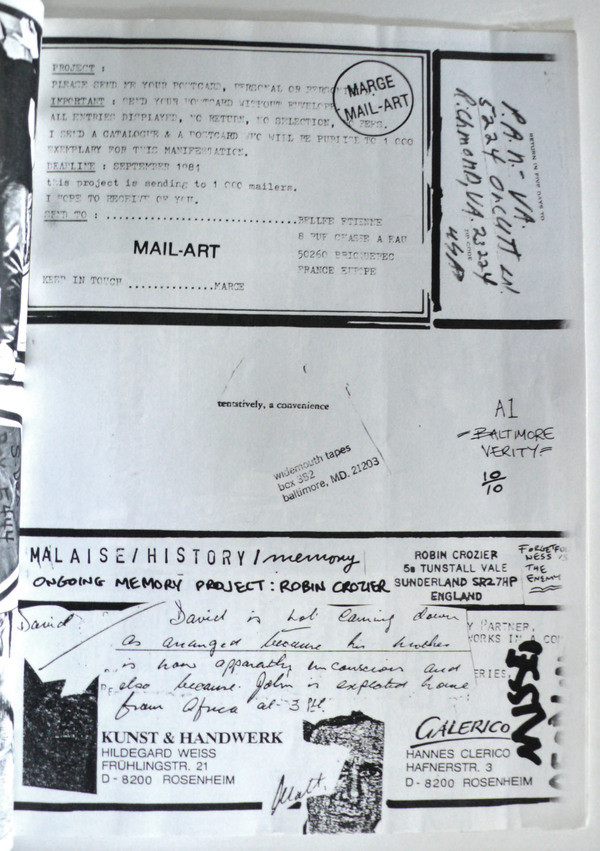 PROJECT :
PLEASE SEND ME YOUR POSTCARD, PERSONAL OR
IMPORTANT : SEND YOUR POSTCARD WITHOUT
ALL ENTRIES DISPLAYED, NO RETURN, NO SELECTION,
I SEND A CATALOGUE & A POSTCARD WHO WILL BE 1 000
EXEMPLARY FOR THIS MANIFESTATION.
DEADLINE : SEPTEMBER 1981
this project is sending to 1 000 mailers.
I HOPE TO RECEIVE OF YOU.
SEND TO : ..............................
8 RUE CHASSE A EAU
50260
FRANCE EUROPE
MAIL-ART
KEEP IN TOUCH ..............MARGE
MARGE
MAIL-ART
P.A.N. - VA.
5224 ORCUTT LN.
RICHMOND, VA. 23224
USA
tentatively, a convenience
widemouth tapes
box 382
baltimore, MD. 21203
A1
=BALTIMORE
VERITY=
10/10
MALAISE/HISTORY/memory
ONGOING MEMORY PROJECT: ROBIN CROZIER
ROBIN CROZIER
5B TUNSTALL VALE
SUNDERLAND SR2 7HP
ENGLAND
FORGETFUL
NESS IS
THE
ENEMY
David
David is not coming down
as arranged because his mother
is now apparently unconscious and
also because John is expected home
from Africa at 3 PM.
Y PARTNER,
WORKS IN A CO
ERIES.
KUNST & HANDWERK
HILDEGARD WEISS
FRÜHLINGSTR. 21
D - 8200 ROSENHEIM
Matt.
GALERICO
HANNES CLERICO
HAFNERSTR. 3
D - 8200 ROSENHEIM